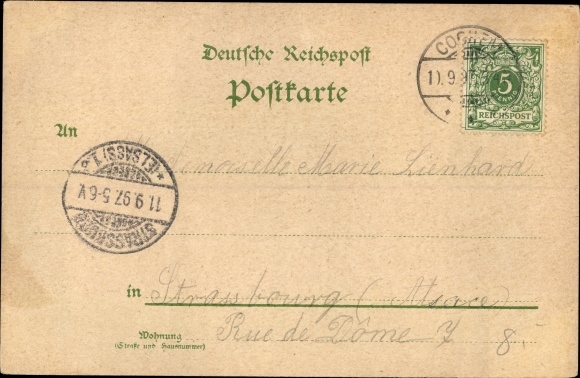 Deutsche Reichspost
Postkarte
COCHEM
11.9.97
5
PFENNIG
REICHSPOST
An
Mademoiselle Marie Lienhard
STRASSBURG
11.9.97.5-6V.
*(ELSASS)1.
in Strassbourg (Alsace)
Wohnung Rue de Dôme 7
(Straße und Hausnummer)
8.-